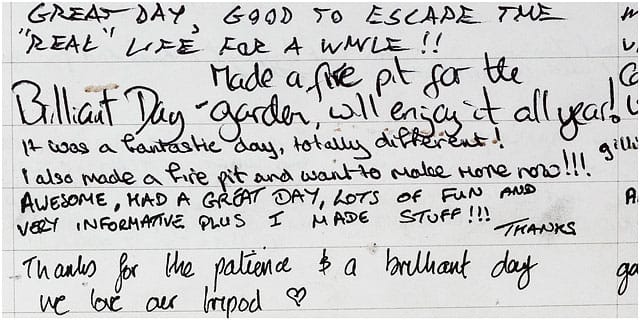 GREAT DAY, GOOD TO ESCAPE THE
"REAL" LIFE FOR A WHILE!!
Made a fire pit for the
Brilliant Day - garden, will enjoy it all year!
It was a fantastic day, totally different!
I also made a fire pit and want to make more now!!! gilli
AWESOME, HAD A GREAT DAY, LOTS OF FUN AND
VERY INFORMATIVE PLUS I MADE STUFF!!!
THANKS
Thanks for the patience & a brilliant day
we love our tripod ♡